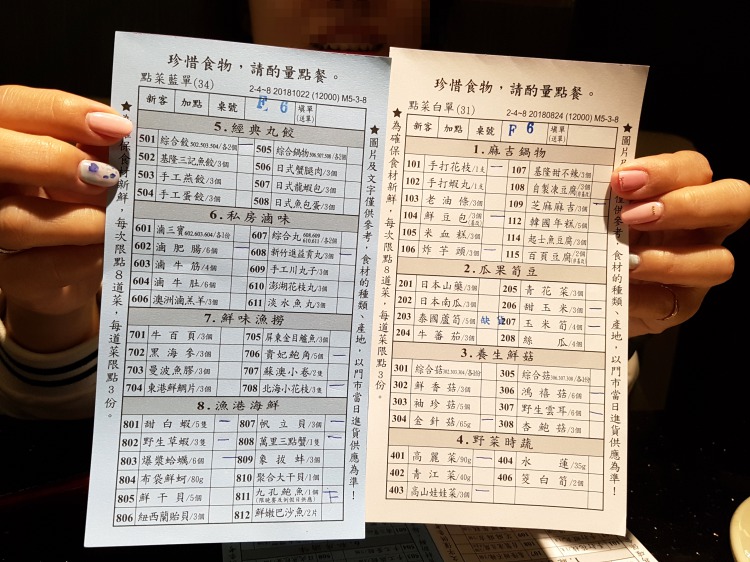 珍惜食物,請酌量點餐。
點菜藍單(34)
2-4~8 20181022 (12000) M5-3-8
新客 加點 桌號 F 6 填單(送單)
5.經典丸餃
501 綜合餃502.503.504/各2個
505 綜合鍋物506.507.508/各2個
502 基隆三記魚餃/3個
506 日式蟹腿肉/3個
503 手工燕餃/3個
507 日式龍蝦包/3個
504 手工蛋餃/3個
508 日式魚包蛋/3個
6.私房滷味
601 滷三寶602.603.604/各2份
607 綜合丸608.609 610.611/各2個
602 滷肥腸/6個
608 新竹進益貢丸/3個
603 滷牛筋/4個
609 手工川丸子/3個
604 滷牛肚/6個
610 澎湖花枝丸/3個
606 澳洲滷羔羊/3個
611 淡水魚丸/3個
7.鮮味漁撈
701 牛百頁/3個
705 屏東金目鱸魚/3個
702 黑海參/3個
706 貴妃鮑角/5個
703 曼波魚膠/3個
707 蘇澳小卷/2隻
704 東港鮮鯛片/3個
708 北海小花枝/3隻
8.漁港海鮮
801 甜白蝦/5隻
807 帆立貝/3個
802 野生草蝦/3隻
808 萬里三點蟹/1隻
803 爆漿蛤蠣/6個
809 象拔蚌/3個
804 布袋鮮蚵/80g
810 聚合大干貝/1個
805 鮮干貝/5個
811 九孔鮑魚/1個
806 紐西蘭貽貝/3個
812 鮮嫩巴沙魚/2片
★為確保食材新鮮,每次限點8道菜,每道菜限點3份。
★圖片及文字僅供參考,食材的種類、產地,以門市當日進貨供應為準!
珍惜食物,請酌量點餐。
點菜白單(31)
2-4~8 20180824 (12000) M5-3-8
新客 加點 桌號 F 6 填單(送單)
1.麻吉鍋物
101 手打花枝/1支
107 基隆甜不辣/3個
102 手打蝦丸/1支
108 自製凍豆腐/3個
103 老油條/3個
109 芝麻麻吉/3個
104 鮮豆包/3個
112 韓國年糕/5個
105 米血糕/3個
114 起士魚豆腐/3個
106 炸芋頭/3個
115 百頁豆腐/2個
2.瓜果筍豆
201 日本山藥/3個
205 青花菜/3個
202 日本南瓜/3個
206 甜玉米/3個
203 泰國蘆筍/5個 缺貨
207 玉米筍/4個
204 牛蕃茄/3個
208 絲瓜/4個
3.養生鮮菇
301 綜合菇302.303.304/各1份
305 綜合菇306.307.308/各1份
302 鮮香菇/3個
306 鴻禧菇/6個
303 袖珍菇/5個
307 野生雲耳/6個
304 金針菇/65g
308 杏鮑菇/3個
4.野菜時蔬
401 高麗菜/90g
404 水蓮/35g
402 青江菜/40g
406 筊白筍/2個
403 高山娃娃菜/3個
★為確保食材新鮮,每次限點8道菜,每道菜限點3份。
僅供參考,食材的種類、產地,以門市當日進貨供應為準!